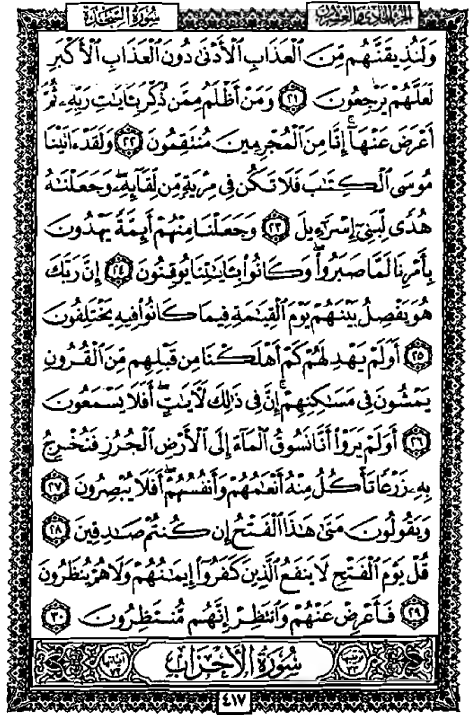 الجزء الحادي والعشرون سورة السجدة
وَلَنُذِيقَنَّهُم مِّنَ ٱلْعَذَابِ ٱلْأَدْنَىٰ دُونَ ٱلْعَذَابِ ٱلْأَكْبَرِ
لَعَلَّهُمْ يَرْجِعُونَ ٢١ وَمَنْ أَظْلَمُ مِمَّن ذُكِّرَ بِـَٔايَٰتِ رَبِّهِۦ ثُمَّ
أَعْرَضَ عَنْهَآ ۚ إِنَّا مِنَ ٱلْمُجْرِمِينَ مُنتَقِمُونَ ٢٢ وَلَقَدْ ءَاتَيْنَا
مُوسَى ٱلْكِتَٰبَ فَلَا تَكُن فِى مِرْيَةٍ مِّن لِّقَآئِهِۦ ۖ وَجَعَلْنَٰهُ
هُدًى لِّبَنِىٓ إِسْرَٰٓءِيلَ ٢٣ وَجَعَلْنَا مِنْهُمْ أَئِمَّةً يَهْدُونَ
بِأَمْرِنَا لَمَّا صَبَرُوا۟ ۖ وَكَانُوا۟ بِـَٔايَٰتِنَا يُوقِنُونَ ٢٤ إِنَّ رَبَّكَ
هُوَ يَفْصِلُ بَيْنَهُمْ يَوْمَ ٱلْقِيَٰمَةِ فِيمَا كَانُوا۟ فِيهِ يَخْتَلِفُونَ
٢٥ أَوَلَمْ يَهْدِ لَهُمْ كَمْ أَهْلَكْنَا مِن قَبْلِهِم مِّنَ ٱلْقُرُونِ
يَمْشُونَ فِى مَسَٰكِنِهِمْ ۚ إِنَّ فِى ذَٰلِكَ لَءَايَٰتٍ ۖ أَفَلَا يَسْمَعُونَ
٢٦ أَوَلَمْ يَرَوْا۟ أَنَّا نَسُوقُ ٱلْمَآءَ إِلَى ٱلْأَرْضِ ٱلْجُرُزِ فَنُخْرِجُ
بِهِۦ زَرْعًا تَأْكُلُ مِنْهُ أَنْعَٰمُهُمْ وَأَنفُسُهُمْ ۖ أَفَلَا يُبْصِرُونَ ٢٧
وَيَقُولُونَ مَتَىٰ هَٰذَا ٱلْفَتْحُ إِن كُنتُمْ صَٰدِقِينَ ٢٨
قُلْ يَوْمَ ٱلْفَتْحِ لَا يَنفَعُ ٱلَّذِينَ كَفَرُوٓا۟ إِيمَٰنُهُمْ وَلَا هُمْ يُنظَرُونَ
٢٩ فَأَعْرِضْ عَنْهُمْ وَٱنتَظِرْ إِنَّهُم مُّنتَظِرُونَ ٣٠
سُورَةُ الأَحْزَابِ
٤١٧